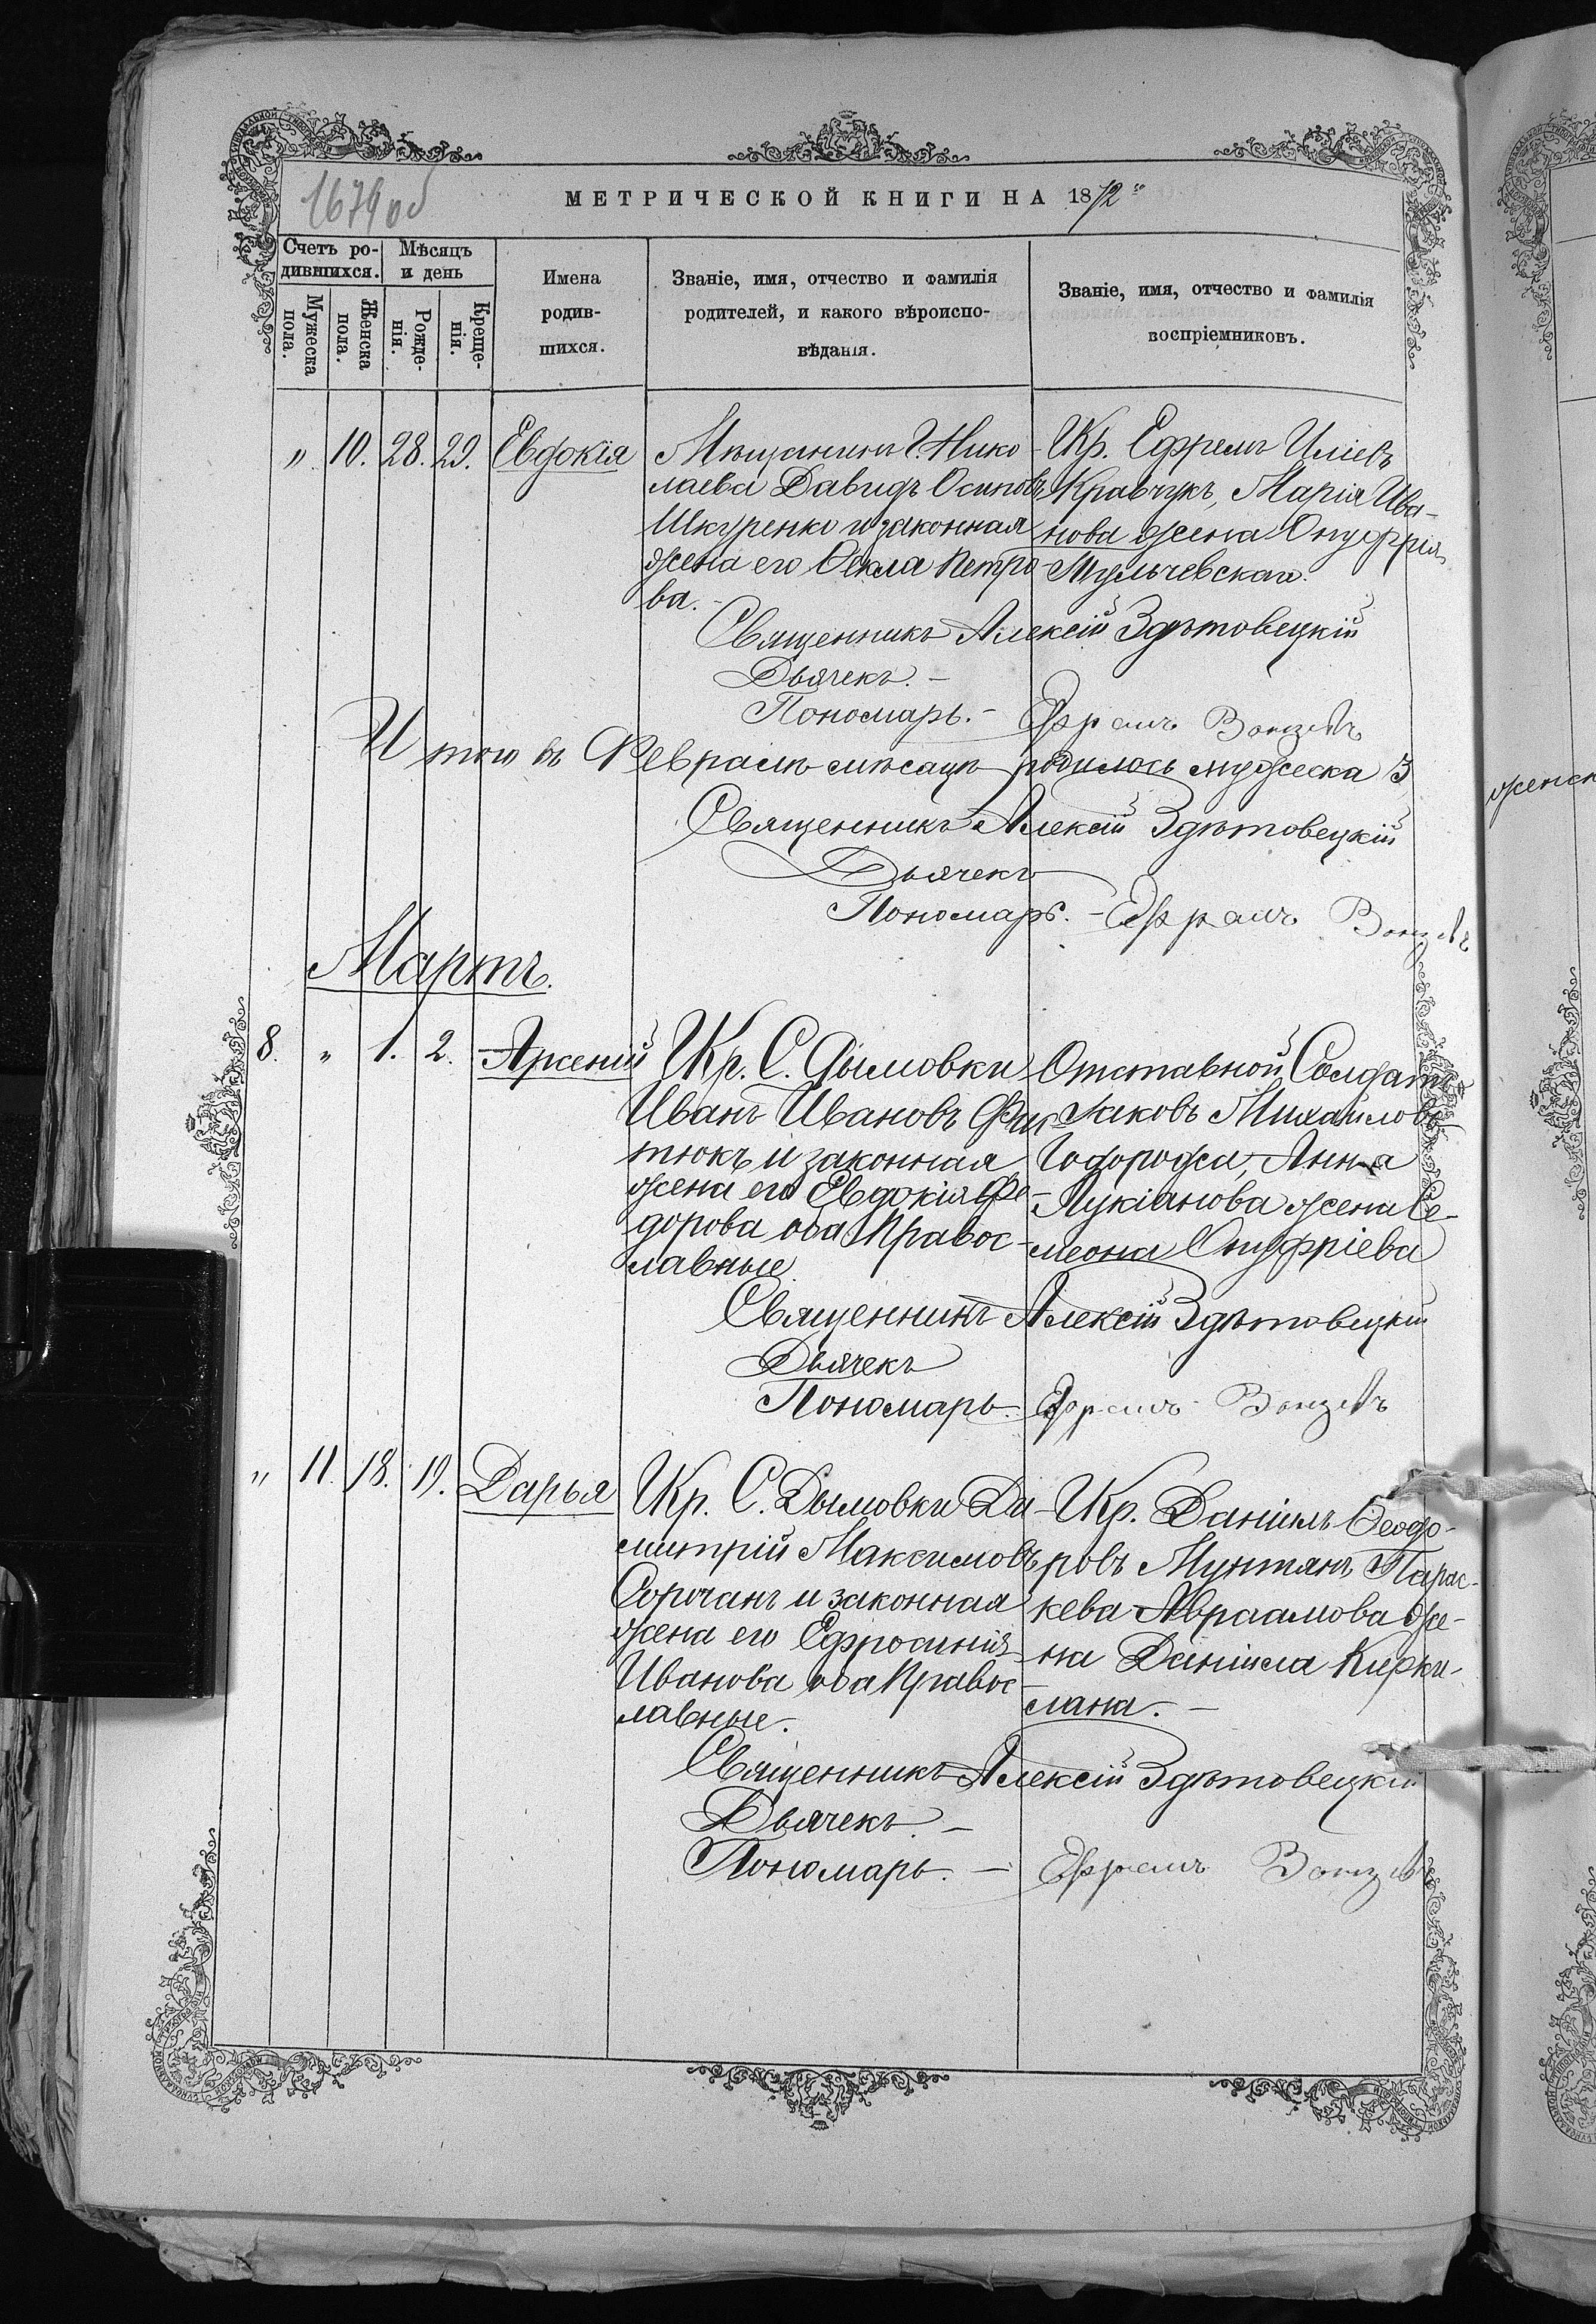 1679об
МЕТРИЧЕСКОЙ КНИГИ НА 1872й
Счетъ ро-
дившихся.
Мѣсяцъ
и день
Мужеска
пола.
Женска
пола.
Рожде-
нія.
Креще-
нія.
Имена
родив-
шихся.
Званіе, имя, отчество и фамилія
родителей, и какого вѣроиспо-
вѣданія.
Званіе, имя, отчество и фамилія
воспріемниковъ.
" 10. 28. 29. Евдокія
Мѣщанинъ Г. Нико-
лаева Давидъ Осиповъ
Шкуренко и законная
жена его Ѳекла Петро-
ва.
Кр. Ефремъ Иліевъ
Кравчукъ, Марія Ива-
нова жена Онуфрія
Мульчевская.
Священникъ Алексій
Дьячекъ. -
Пономарь. - Ефремъ
Итого въ Февралѣ мѣсяцѣ родилось мужеска 3
женск
Священникъ Алексій
Дьячекъ
Пономарь. - Ефремъ
Мартъ.
8. " 1. 2. Арсеній
Кр. С. Дымовки
Иванъ Ивановъ
тюкъ и законная
жена его Евдокія Фе-
дорова оба Правос-
лавные
Отставной Солдатъ
Яковъ Михайловъ
Анна
Лукіанова жена Се-
меона Онуфріева
Священникъ Алексій
Дьячекъ
Пономарь - Ефремъ
" 11. 18. 19. Дарья
Кр. С. Дымовки Ди-
митрій Максимовъ
Сорочанъ и законная
жена его Ефросинія
Иванова оба Правос-
лавные.
Кр. Даніилъ Ѳеодо-
ровъ Мунтянъ, Парас-
кева Авраамова же-
на Даніила Кирки-
лана. -
Священникъ Алексій
Дьячекъ. -
Пономарь. - Ефремъ